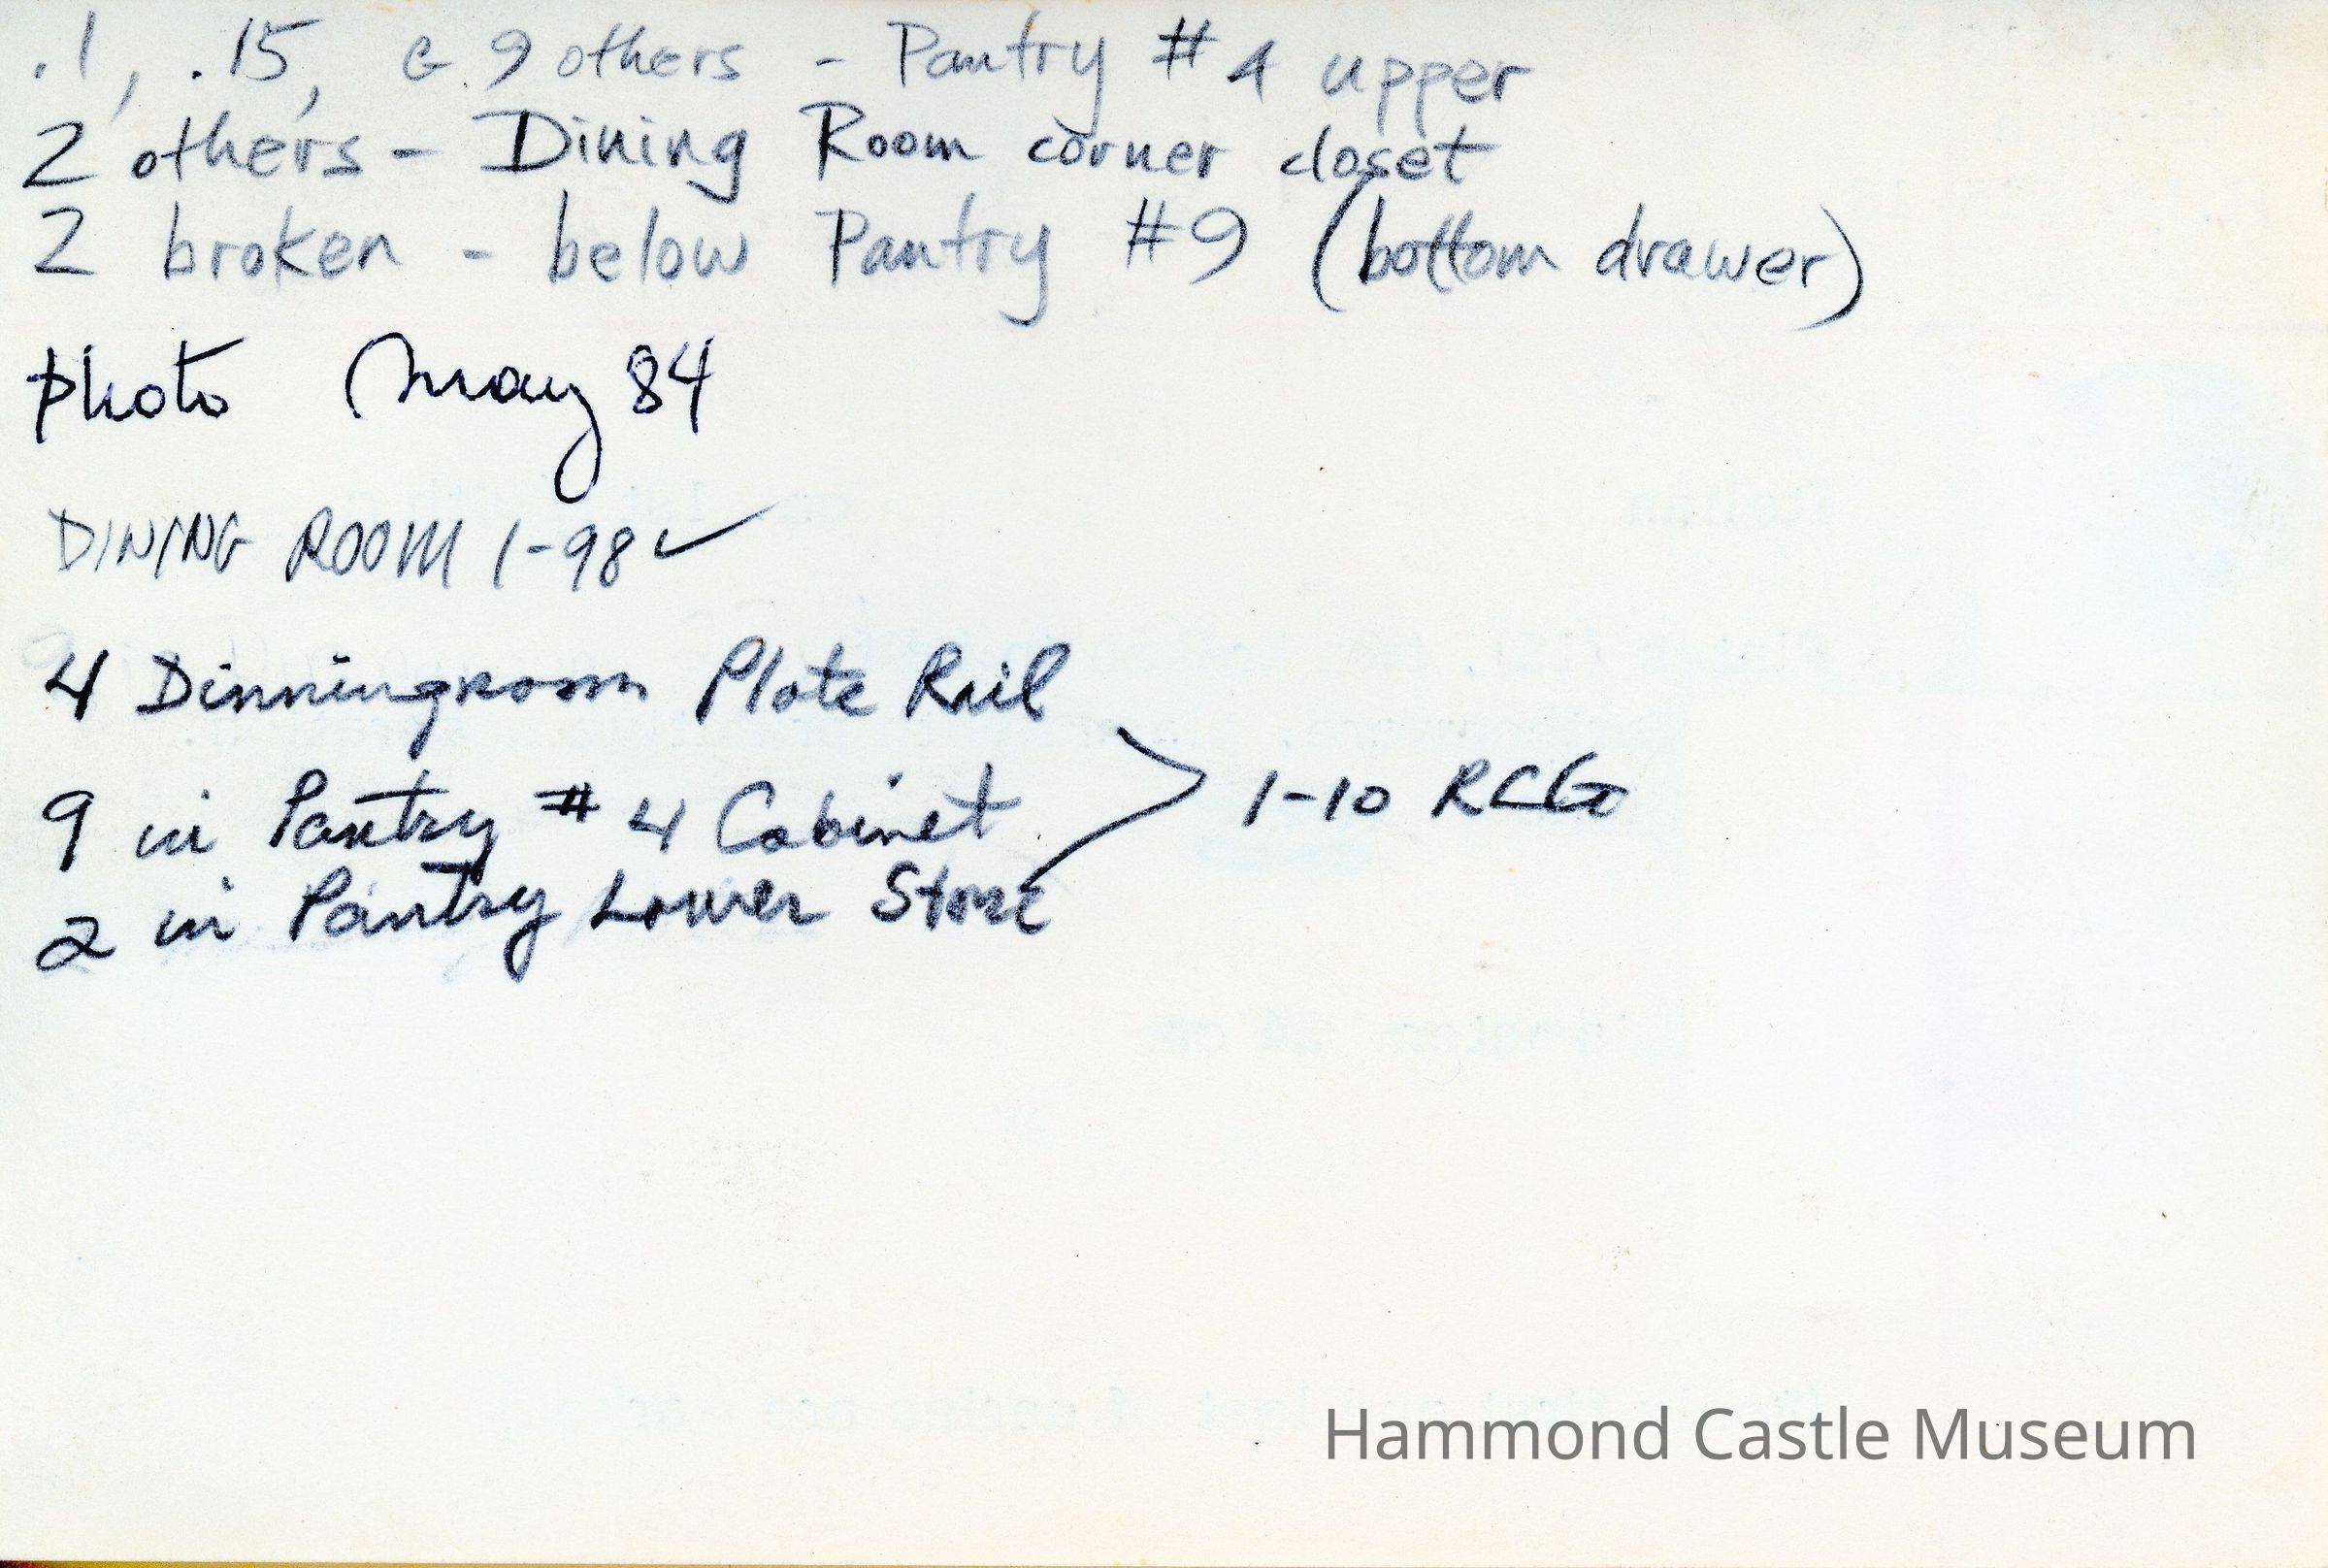 .1, .15, & 9 others - Pantry #4 upper
2 others - Dining Room corner closet
2 broken - below Pantry #9 (bottom drawer)
photo May 84
DINING ROOM 1-98 ✓
4 Dinningroom Plate Rail
9 in Pantry #4 Cabinet
2 in Pantry Lower Store
1-10 RCG
Hammond Castle Museum